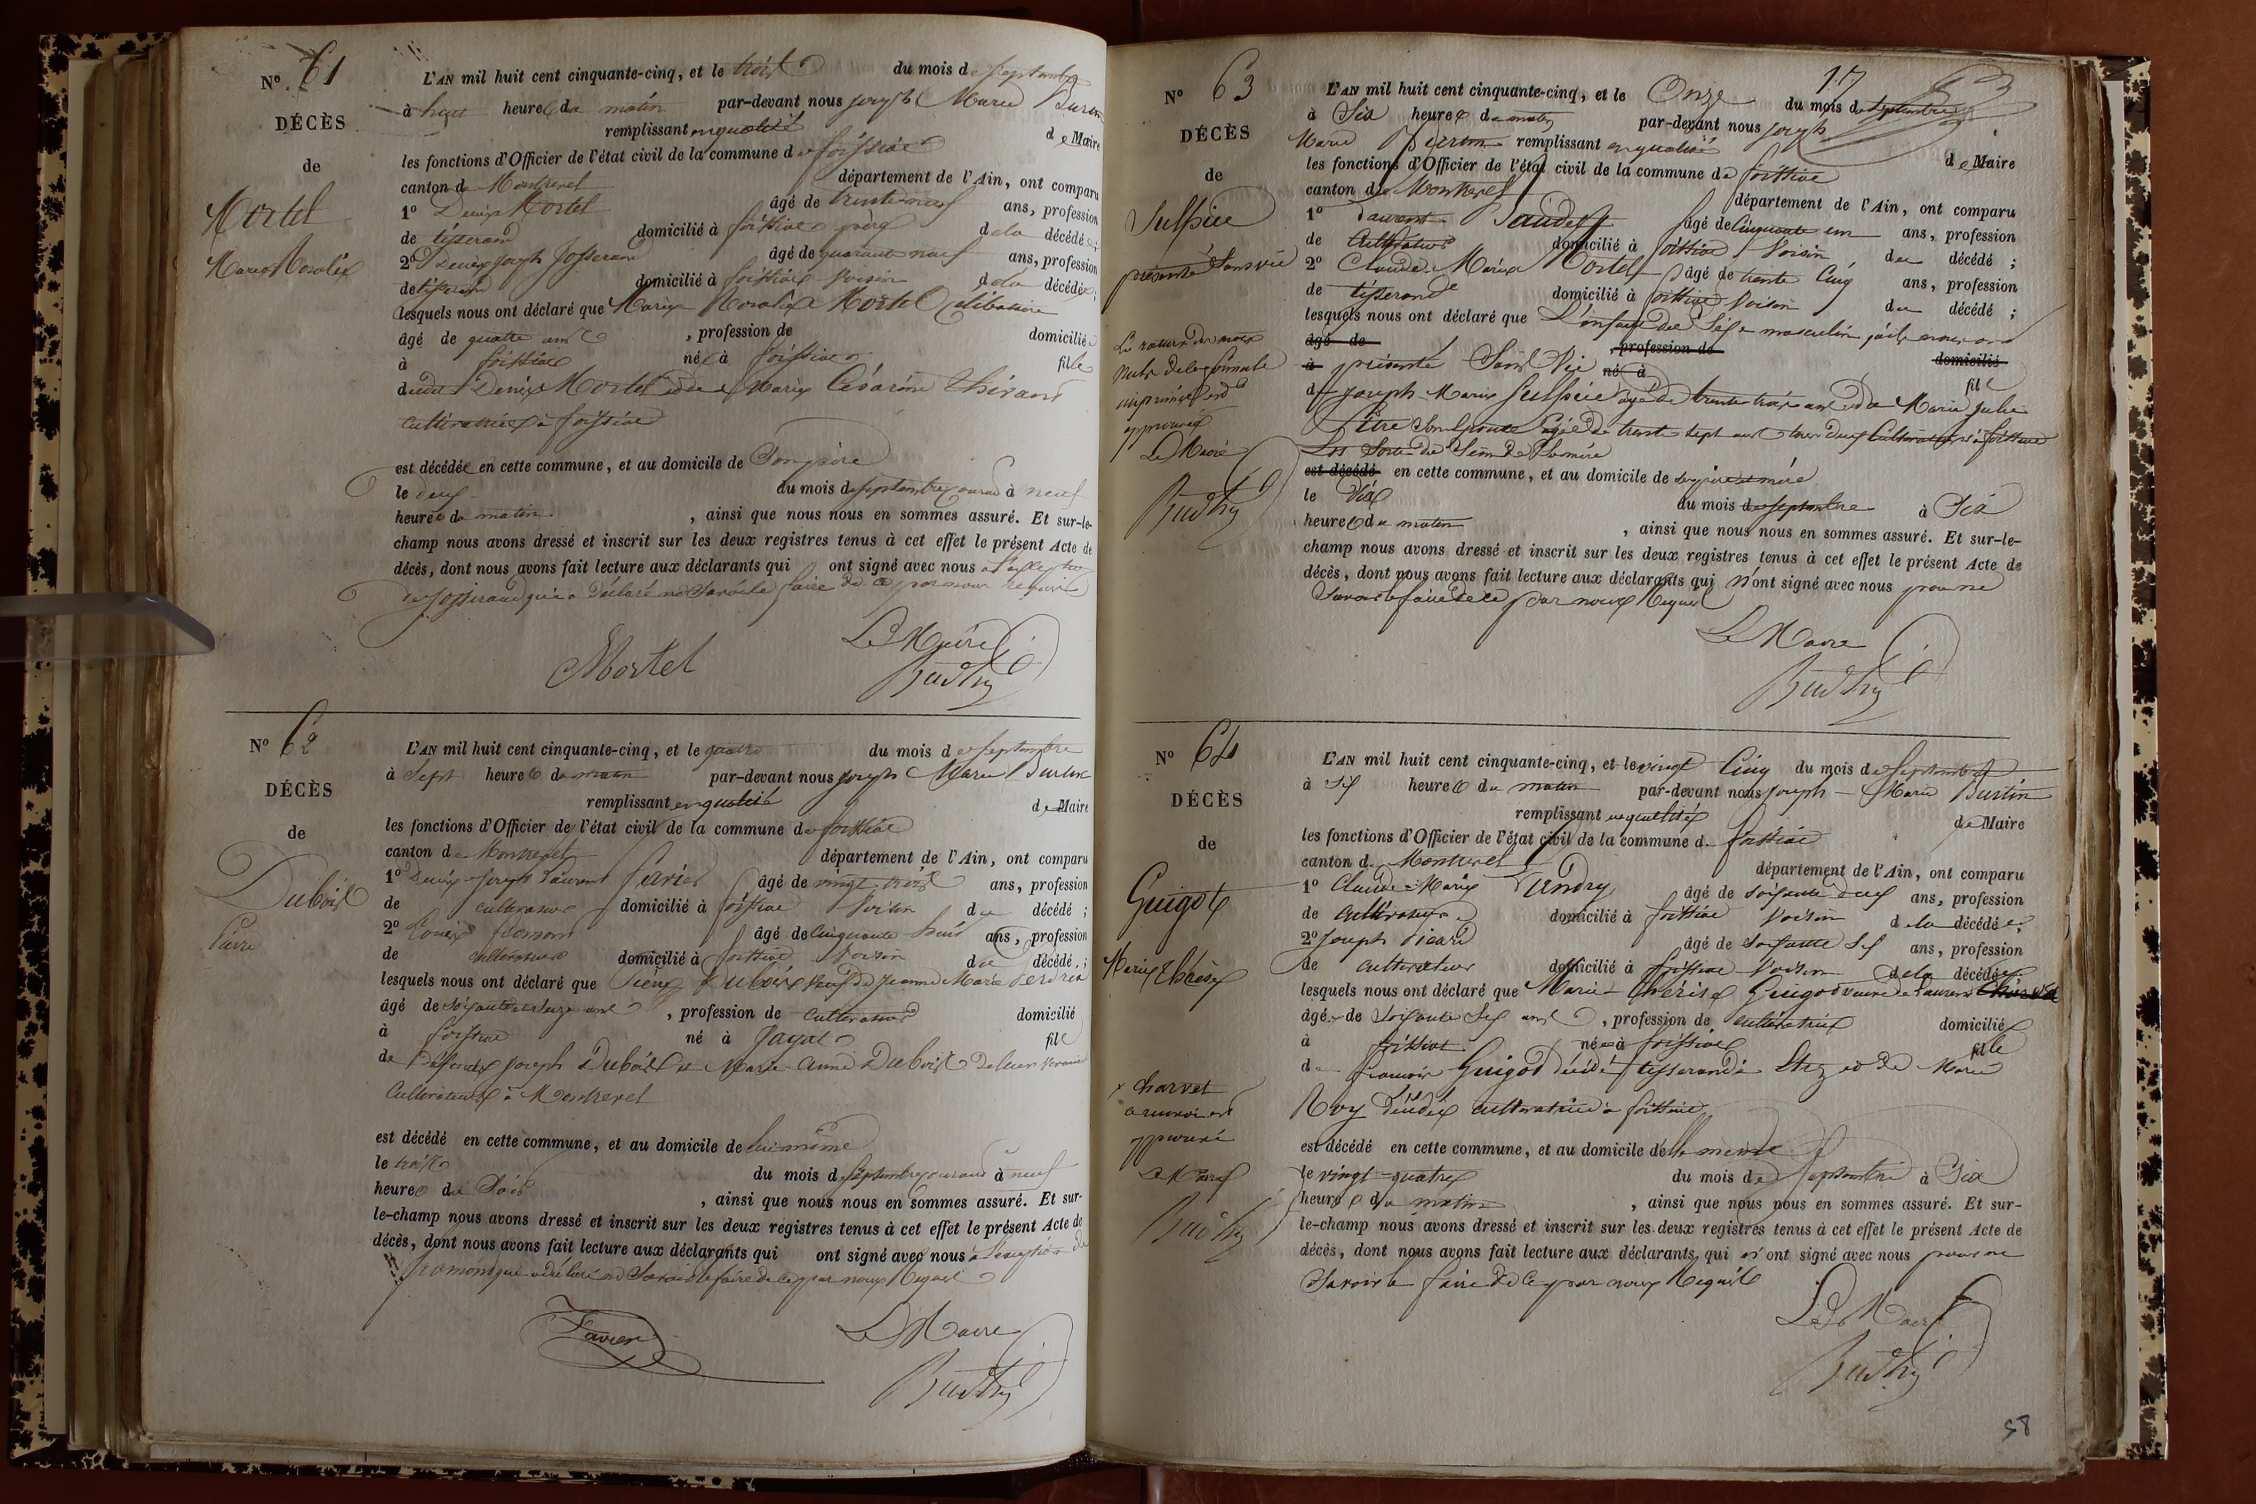 N° 61
DÉCÈS
de
Mortel
Marie Rosalie
L'AN mil huit cent cinquante-cinq, et le trois du mois de septembre
à huit heures du matin par-devant nous joseph Marie Burtin
remplissant en qualité de Maire
les fonctions d'Officier de l'état civil de la commune de foissiat
canton de Montrevel département de l'Ain, ont comparu
1° Denis Mortel âgé de trente neuf ans, profession
de tisserand domicilié à foissiat père de la décédée;
2° Denis joseph Josserand âgé de quarante neuf ans, profession
de tisserand domicilié à foissiat voisin de la décédée;
lesquels nous ont déclaré que Marie Rosalie Mortel célibataire
âgé de quatre ans, profession de domiciliée
à foissiat née à foissiat fille
dudit Denis Mortel et de Marie Césarine
cultivatrice à foissiat
est décédée en cette commune, et au domicile de son père
le deux du mois de septembre courant à neuf
heures du matin, ainsi que nous nous en sommes assuré. Et sur-le-
champ nous avons dressé et inscrit sur les deux registres tenus à cet effet le présent Acte de
décès, dont nous avons fait lecture aux déclarants qui ont signé avec nous
josserand qui a déclaré ne savoir le faire de ce par nous requis
Mortel
Le Maire
Burtin
N° 62
DÉCÈS
de
Dubois
Pierre
L'AN mil huit cent cinquante-cinq, et le quatre du mois de septembre
à sept heures du matin par-devant nous joseph Marie Burtin
remplissant en qualité de Maire
les fonctions d'Officier de l'état civil de la commune de foissiat
canton de Montrevel département de l'Ain, ont comparu
1° Denis joseph Laurent favier âgé de vingt trois ans, profession
de cultivateur domicilié à foissiat voisin du décédé;
2° Louis âgé de cinquante huit ans, profession
de cultivateur domicilié à foissiat voisin du décédé;
lesquels nous ont déclaré que Pierre Dubois veuf de jeanne Marie
âgé de soixante et seize ans, profession de cultivateur domicilié
à foissiat né à jayat fils
de défunts joseph Dubois et Marie Anne Dubois de leur vivant
cultivateurs à Montrevel
est décédé en cette commune, et au domicile de lui même
le trois du mois de septembre courant à neuf
heures du soir, ainsi que nous nous en sommes assuré. Et sur-
le-champ nous avons dressé et inscrit sur les deux registres tenus à cet effet le présent Acte de
décès, dont nous avons fait lecture aux déclarants qui ont signé avec nous à l'exception de
qui a déclaré ne savoir le faire de ce par nous requis
Favier
Le Maire
Burtin
17
N° 63
DÉCÈS
de
Sulpice
présenté sans vie
L'AN mil huit cent cinquante-cinq, et le Onze du mois de septembre
à six heures du matin par-devant nous joseph
Marie Burtin remplissant en qualité de Maire
les fonctions d'Officier de l'état civil de la commune de foissiat
canton de Montrevel département de l'Ain, ont comparu
1° Laurent Baudet âgé de cinquante un ans, profession
de cultivateur domicilié à foissiat voisin du décédé;
2° Claude Marie Mortel âgé de trente cinq ans, profession
de tisserand domicilié à foissiat voisin du décédé;
lesquels nous ont déclaré que L'enfant du sexe masculin
âgé de profession de domicilié
à présenté sans vie né à fils
de joseph Marie Sulpice âgé de trente trois ans et de Marie julie
son épouse âgée de trente sept ans tous deux cultivateurs à foissiat
est sorti du sein de sa mère
est décédé en cette commune, et au domicile de ses père et mère
le dix du mois de septembre à six
heures du matin, ainsi que nous nous en sommes assuré. Et sur-le-
champ nous avons dressé et inscrit sur les deux registres tenus à cet effet le présent Acte de
décès, dont nous avons fait lecture aux déclarants qui n'ont signé avec nous pour ne
savoir le faire de ce par nous requis
Le Maire
Burtin
La rature de mots
nuls de la formule
imprimée est
approuvée
Le Maire
Burtin
N° 64
DÉCÈS
de
Guigot
Marie Thérèse
L'AN mil huit cent cinquante-cinq, et le vingt cinq du mois de septembre
à six heures du matin par-devant nous joseph Marie Burtin
remplissant en qualité de Maire
les fonctions d'Officier de l'état civil de la commune de foissiat
canton de Montrevel département de l'Ain, ont comparu
1° Claude Marie âgé de soixante deux ans, profession
de cultivateur domicilié à foissiat voisin de la décédée;
2° joseph Picard âgé de soixante six ans, profession
de cultivateur domicilié à foissiat voisin de la décédée;
lesquels nous ont déclaré que Marie Thérèse Guigot veuve de Laurent
âgée de soixante six ans, profession de cultivatrice domiciliée
à foissiat née à foissiat fille
de françois Guigot décédé tisserand à et de Marie
Roy décédée cultivatrice à foissiat
est décédé en cette commune, et au domicile d'elle même
le vingt-quatre du mois de septembre à six
heures du matin, ainsi que nous nous en sommes assuré. Et sur-
le-champ nous avons dressé et inscrit sur les deux registres tenus à cet effet le présent Acte de
décès, dont nous avons fait lecture aux déclarants, qui n'ont signé avec nous pour ne
savoir le faire de ce par nous requis
Le Maire
Burtin
x charvet
approuvé
Le Maire
Burtin
58